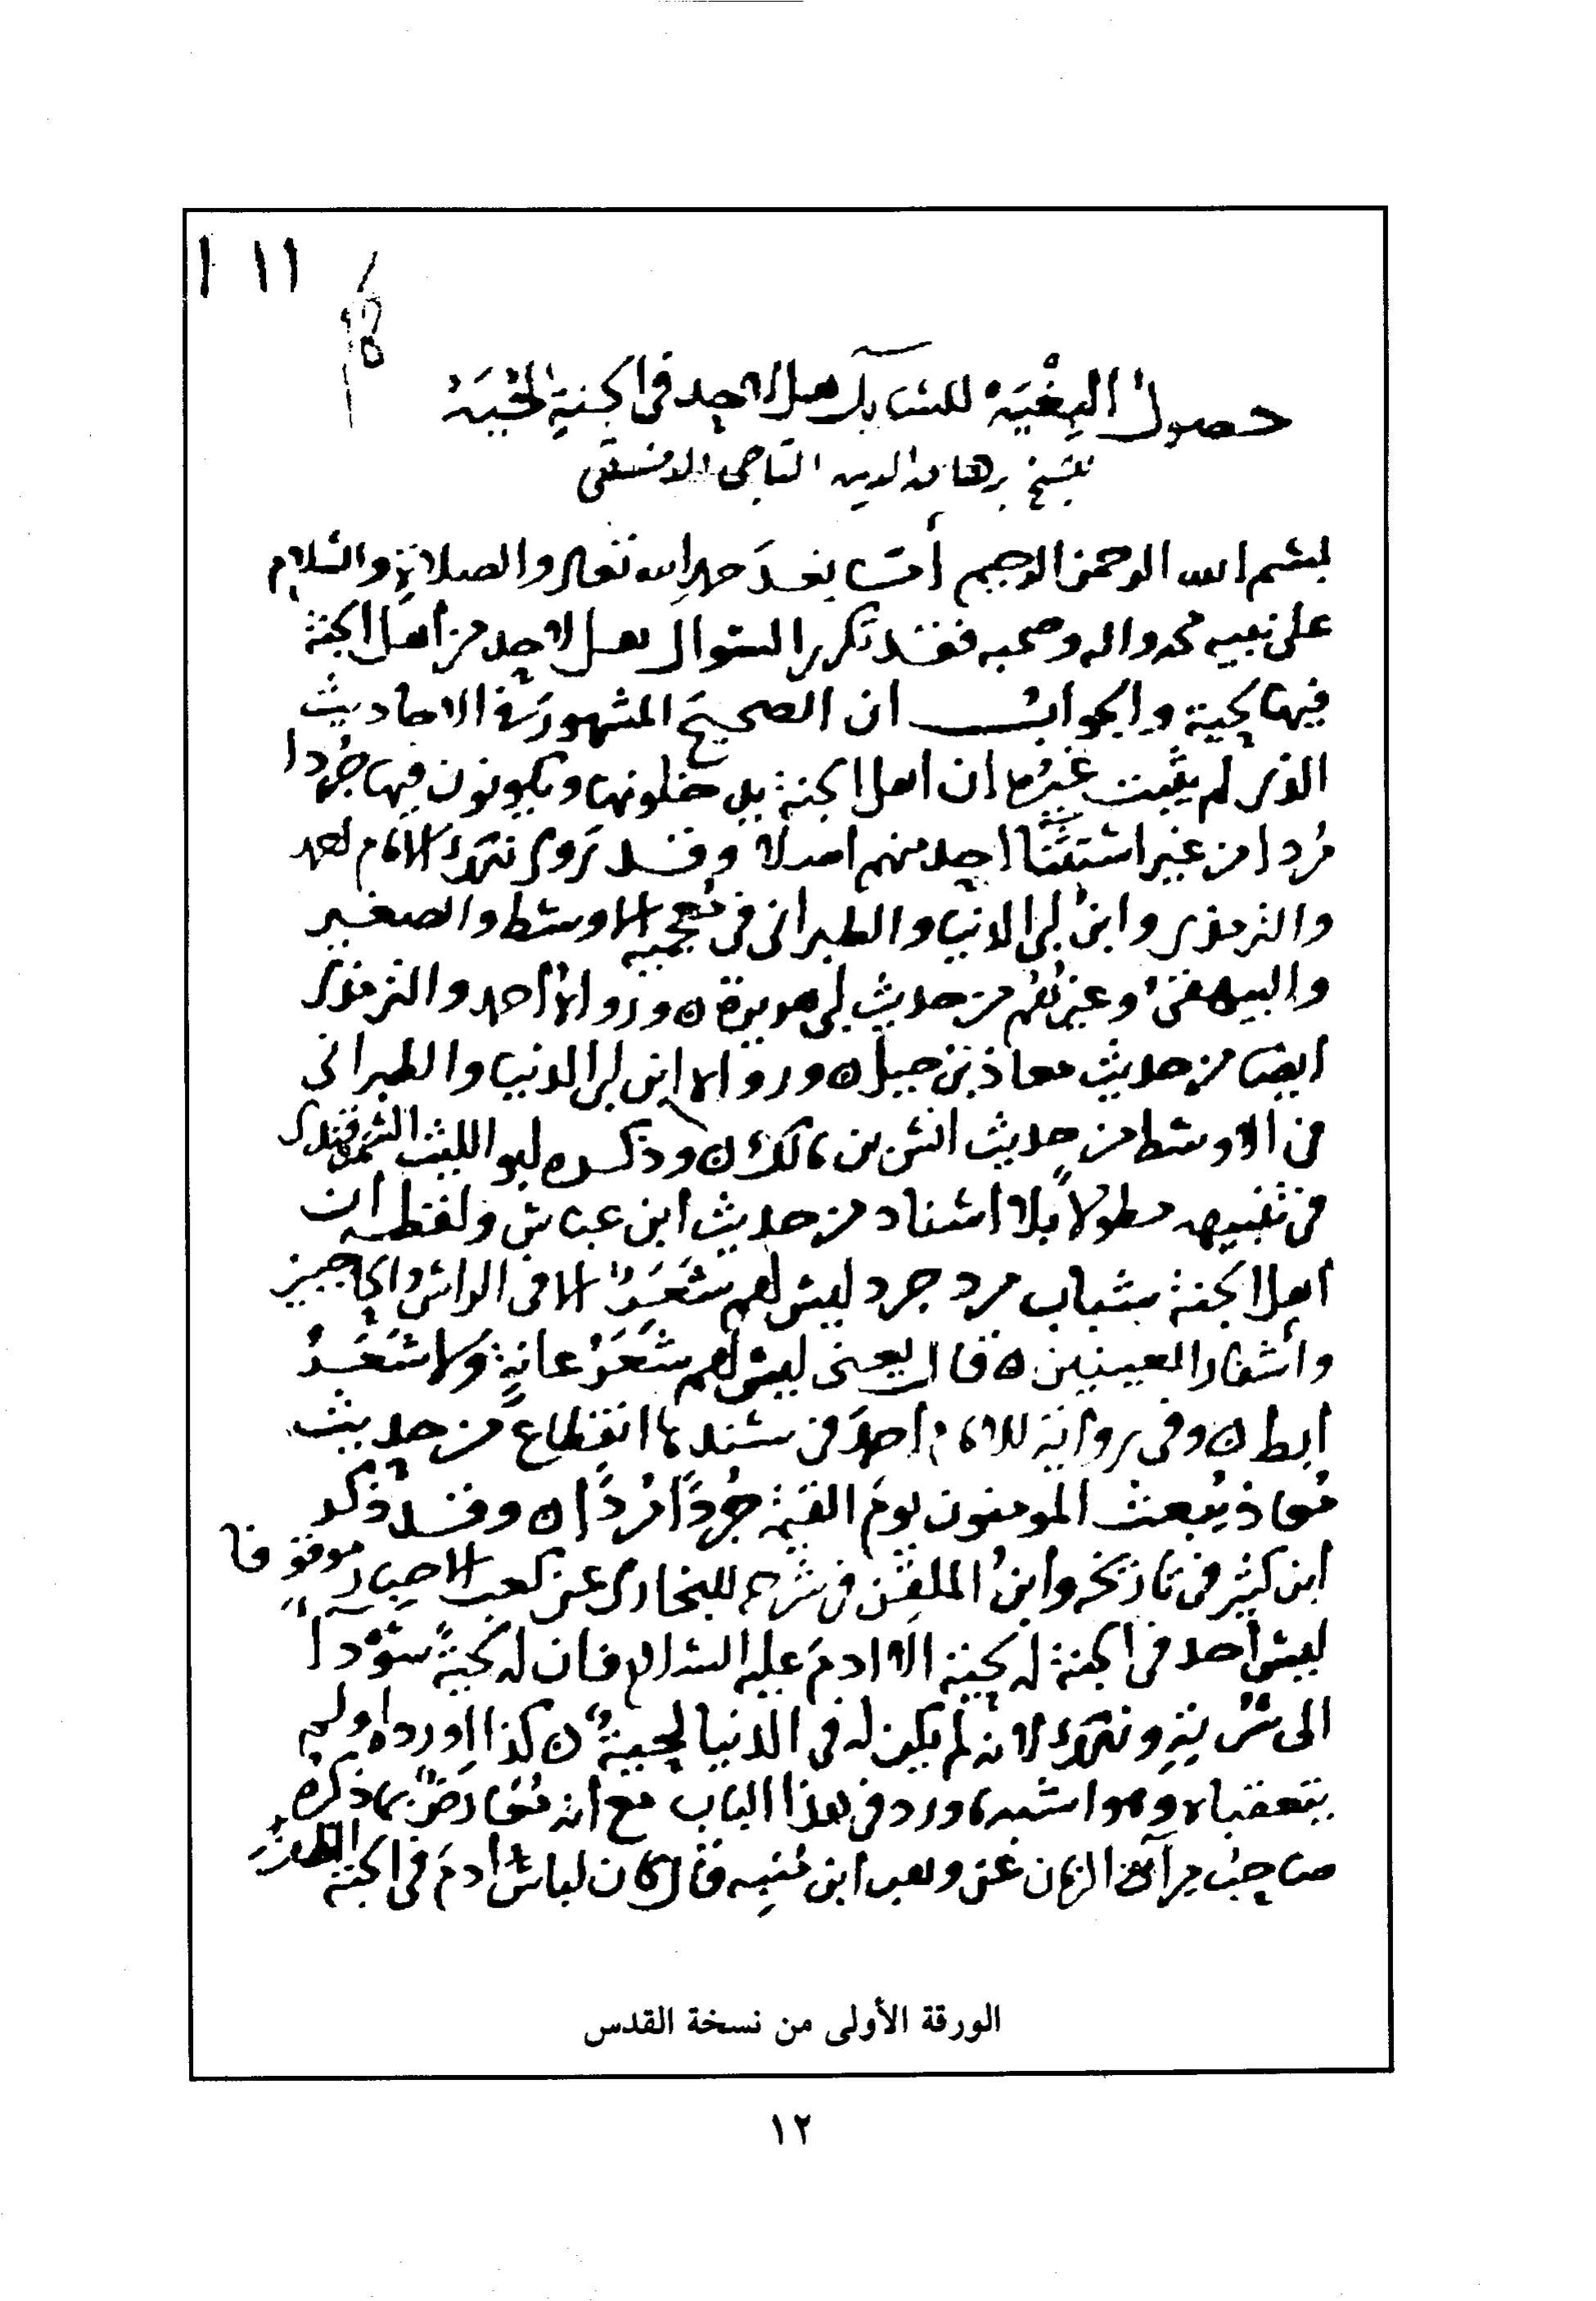 ١١ ١
حصول البغية للسائل هل لاحد في الجنة لحية
للشيخ برهان الدين الناجي الدمشقي
بسم الله الرحمن الرحيم أما بعد حمد الله تعالى والصلاة والسلام
على نبيه محمد واله وصحبه فقد تكرر السوال هل لاحد من أهل الجنة
فيها لحية والجواب ان الصحيح المشهور في الاحاديث
الذي لم يثبت غيره ان اهل الجنة يدخلونها ويكونون فيها جُردا
مُردا من غير استثنا احد منهم اصلا وقد رَوى ذلك الامام احمد
والترمذي وابنُ ابي الدنيا والطبراني في مُعجميه الاوسط والصغير
والبيهقي وغيرُهم من حديث ابي هريرة ه ورواه أحمد والترمذي
ايضا من حديث معاذ بن جبل ه ورواه ابن ابي الدنيا والطبراني
في الاوسط من حديث انس بن مالك ه وذكره ابو الليث السمرقندي
في تنبيهه مطولاً بلا اسناد من حديث ابن عباس ولفظه ان
أهل الجنة شباب مرد جرد ليس لهم شَعَرٌ الا في الراس والحاجبين
وأشفار العينين ه قال يعني ليس لهم شَعَرُ عانةٍ ولا شَعَرُ
ابط ه وفي رواية للامام احمدَ في سندها انقطاع من حديث
مُعاذ يُبعث المومنون يومَ القيمة جُردًا مُردًا ه وقد ذكر
ابن كثير في تاريخه وابنُ الملقن في شرحه للبخاري عن كعب الاحبار موقوفا
ليس أحد في الجنة له لحية الا ادمَ عليه السلام فان له لحيةً سَوْدآ
الى سُرّتِهِ وذلك لانه لم يكن له في الدنيا لحيةٌ ه كذا اورداه ولم
يتعقباه وهو اشبه ما ورد في هذا الباب مع انه مُعارَضٌ بما ذكره
صاحبُ مرآة الزمان عن وهب ابن مُنبه قال كان لباسُ ادمَ في الجنة الظفرُ
الورقة الأولى من نسخة القدس
١٢